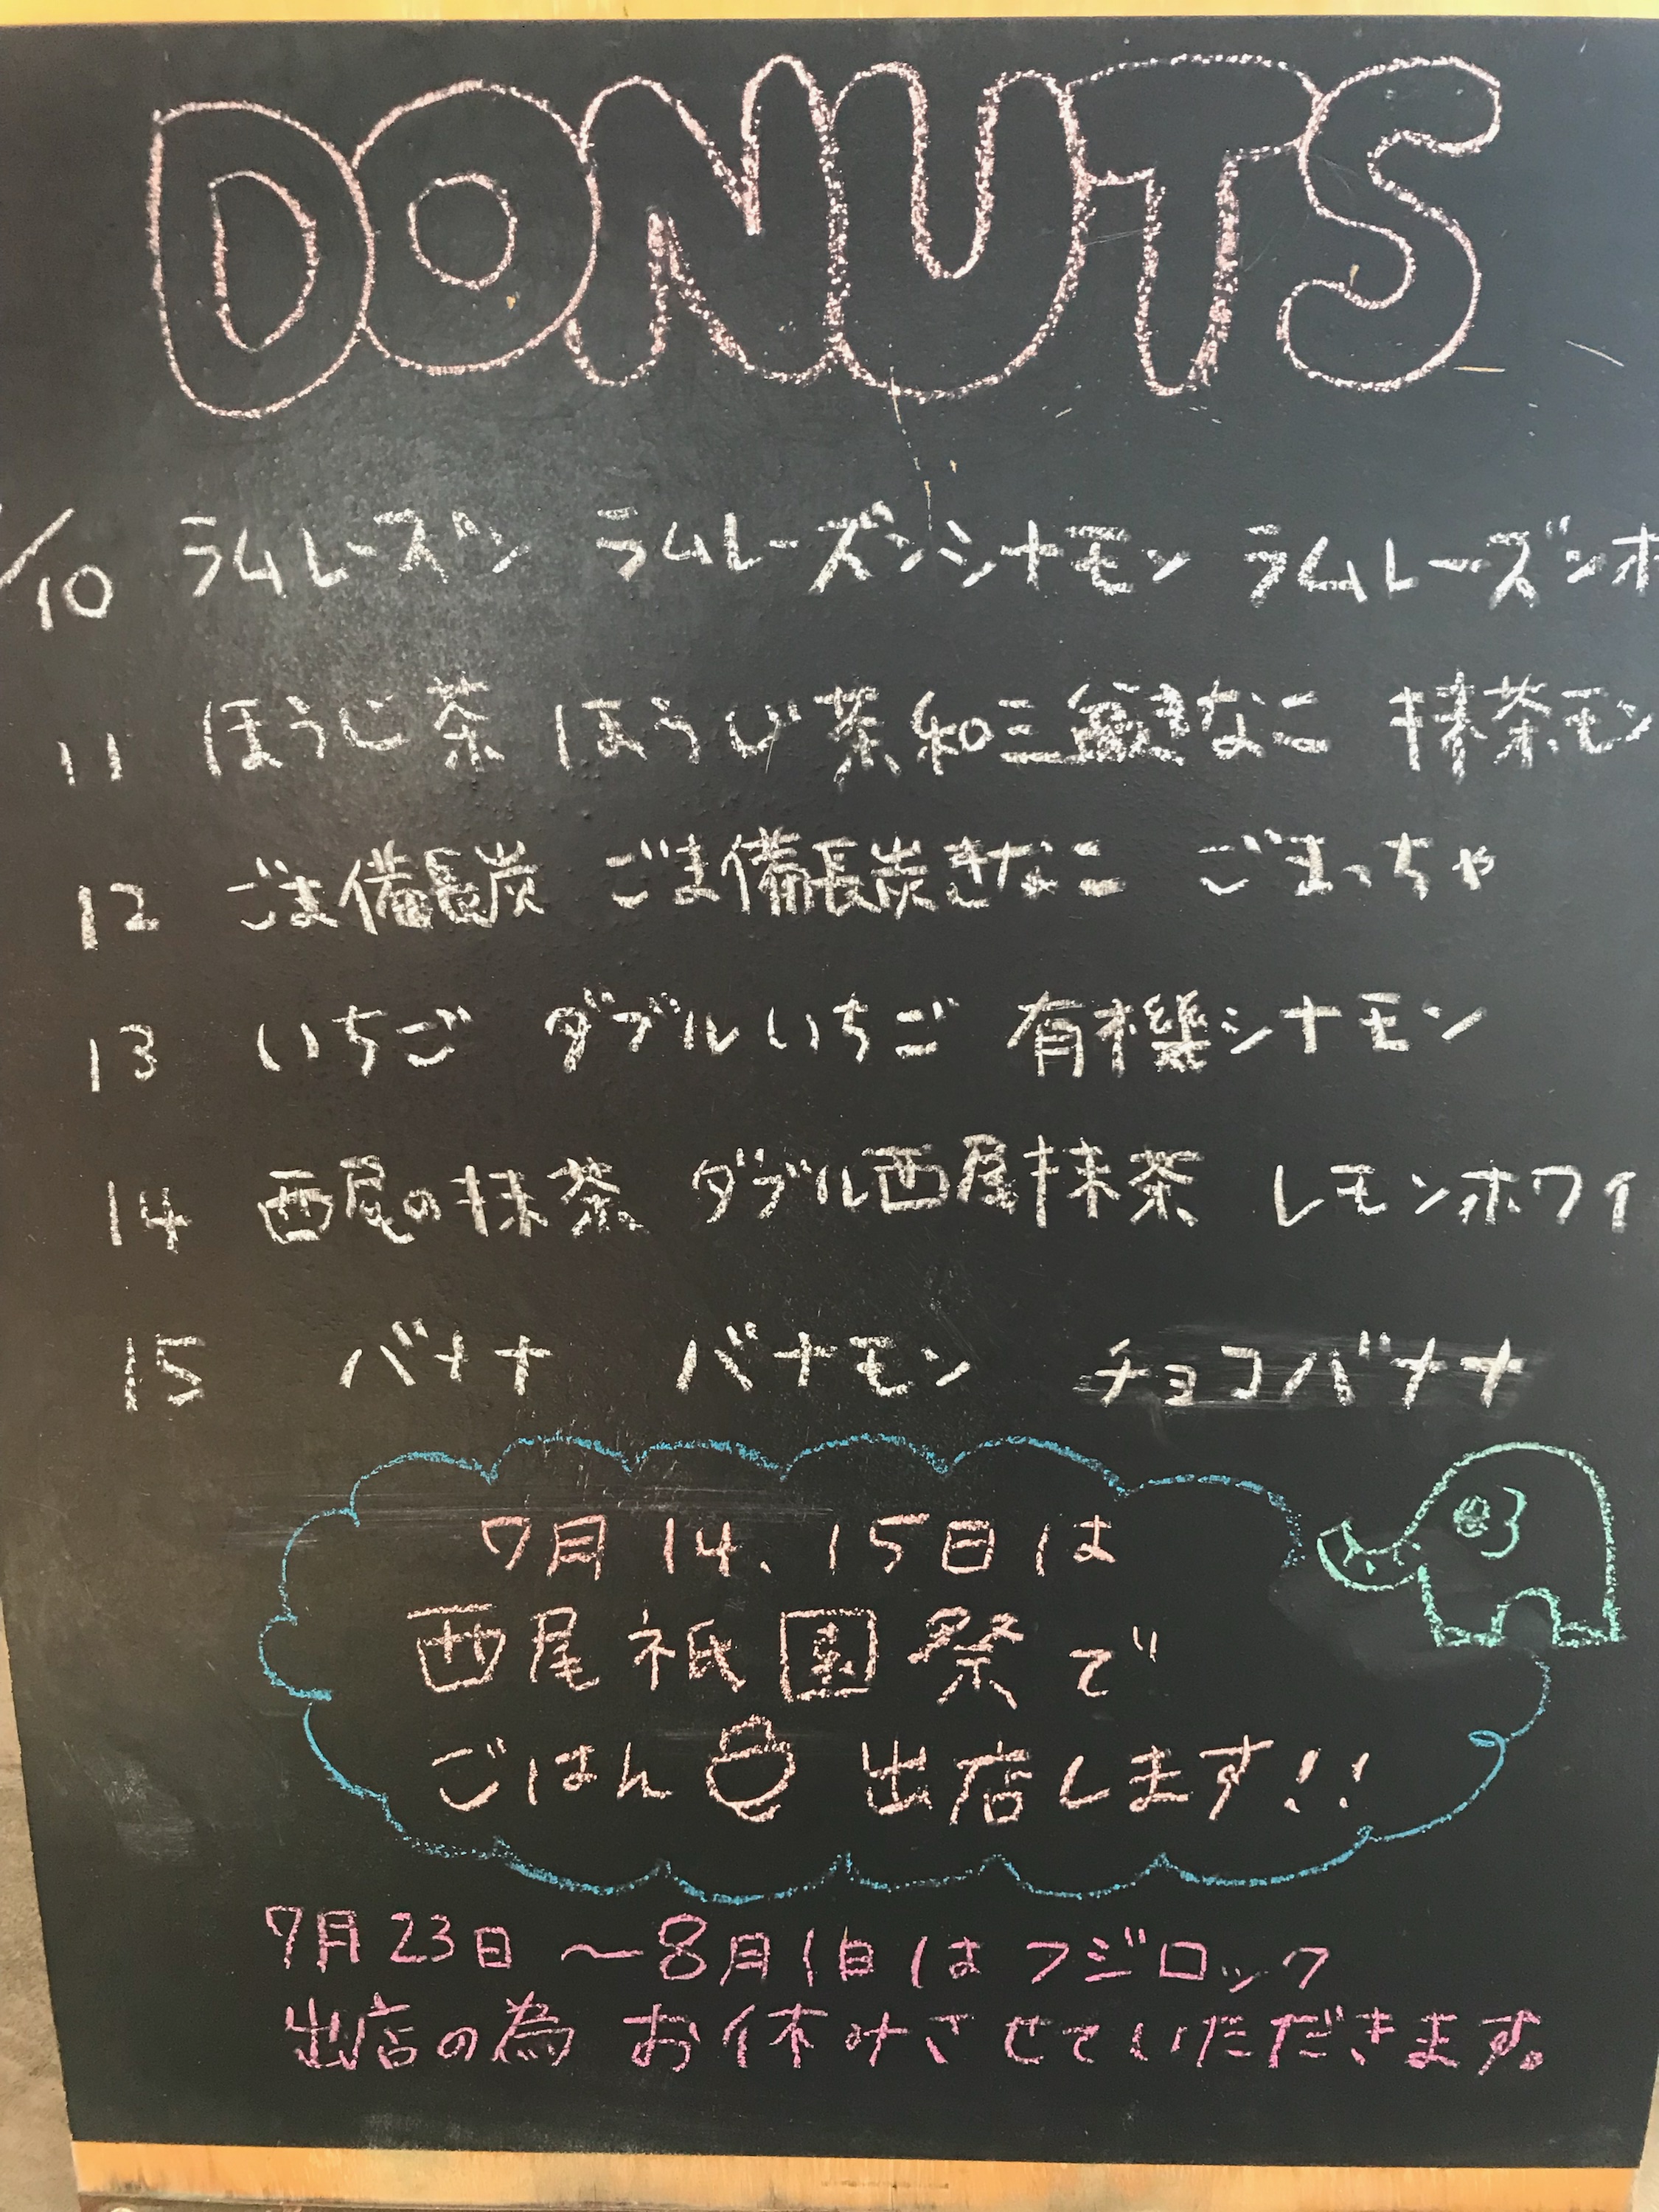 DONUTS
/10 ラムレーズン ラムレーズンシナモン ラムレーズンホ
11 ほうじ茶 ほうじ茶和三盆きなこ 抹茶モン
12 ごま備長炭 ごま備長炭きなこ ごまっちゃ
13 いちご ダブルいちご 有機シナモン
14 西尾の抹茶 ダブル西尾抹茶 レモンホワイ
15 バナナ バナモン チョコバナナ
7月14、15日は
西尾祇園祭で
ごはん 出店します!!
7月23日〜8月1日はフジロック
出店の為 お休みさせていただきます。